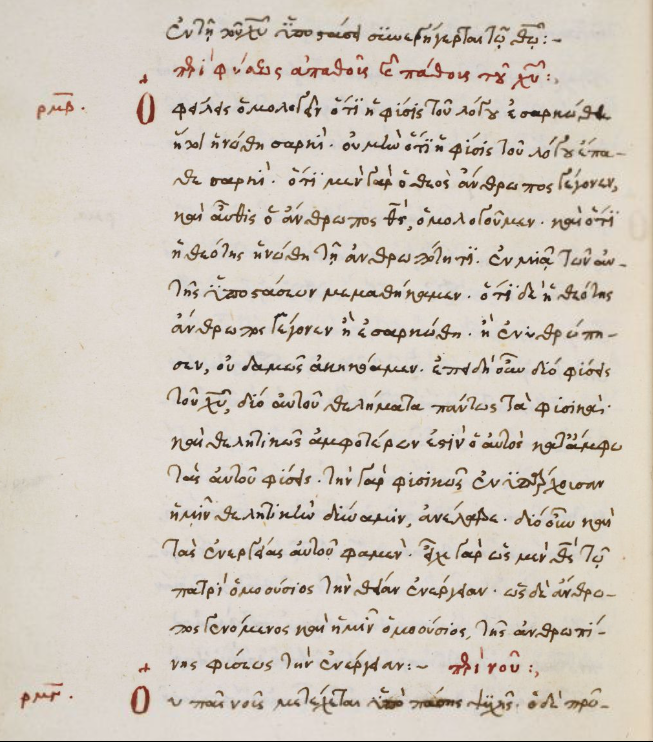 ἐν τῇ τοῦ χ̅υ̅ ὑποστάσει συνεγήγερται τῷ θ̅ω̅:-
περὶ φύσεως ἀπαθοῦς καὶ πάθους τοῦ χ̅υ̅:,
ρμβ. Ὀφείλεις ὁμολογεῖν ὅτι ἡ φύσις τοῦ λόγου ἐσαρκώθη
ἤτοι ἡνώθη σαρκί. οὐ μὴν ὅτι ἡ φύσις τοῦ λόγου ἔπα-
θε σαρκί. ὅτι μὲν γὰρ ὁ θεὸς ἄνθρωπος γέγονεν,
καὶ αὖθις ὁ ἄνθρωπος θ̅ς̅, ὁμολογοῦμεν. καὶ ὅτι
ἡ θεότης ἡνώθη τῇ ἀνθρωπότητι. ἐν μιᾷ τῶν αὐ-
τῆς ὑποστάσεων μεμαθήκαμεν. ὅτι δὲ ἡ θεότης
ἄνθρωπος γέγονεν ἢ ἐσαρκώθη. ἢ ἐνηνθρώπη-
σεν, οὐδαμῶς ἀκηκόαμεν. ἐπειδὴ οὖν δύο φύσεις
τοῦ χ̅υ̅, δύο αὐτοῦ θελήματα πάντως τὰ φυσικά.
καὶ θελητικὸς ἀμφοτέρων ἐστὶν ὁ αὐτὸς κατ' ἄμφω
τὰς αὐτοῦ φύσεις. τὴν γὰρ φυσικῶς ἐνυπάρχουσαν
ἡμῖν θελητικὴν δύναμιν, ἀνέλαβε. δύο οὖν καὶ
τὰς ἐνεργείας αὐτοῦ φαμέν. εἶχε γὰρ ὡς μὲν θ̅ς̅ τῷ
πατρὶ ὁμοούσιος τὴν θείαν ἐνέργειαν. ὡς δὲ ἄνθρω-
πος γενόμενος καὶ ἡμῖν ὁμοούσιος, τῆς ἀνθρωπί-
νης φύσεως τὴν ἐνέργειαν:- περὶ νοῦ:,
ρμγ. Οὐ πᾶς νοῦς μετέχεται ὑπὸ πάσης ψυχῆς. ὁ δὲ πρῶ-